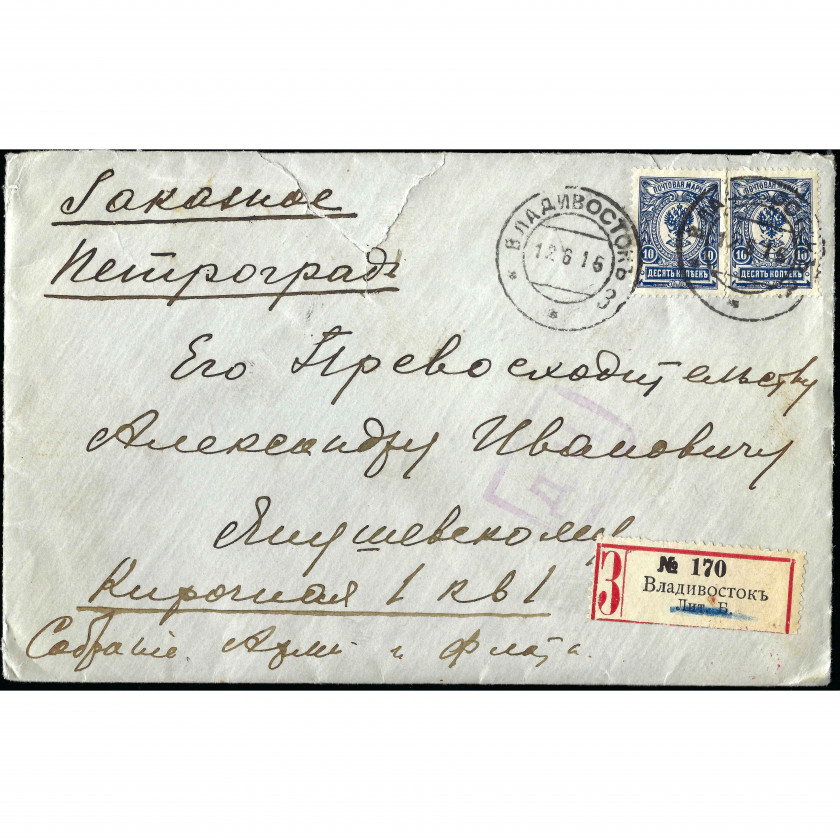 Заказное
Петроградъ
Его Превосходительству
Александру Ивановичу
Янушевскому
Кирочная 1 кв 1
Собрание Арм. и Флота.
ВЛАДИВОСТОКЪ
12 6 16
3
ПОЧТОВАЯ МАРКА
10 10
ДЕСЯТЬ КОПѢЕКЪ
ПОЧТОВАЯ МАРКА
10
ДЕСЯТЬ КОПѢЕКЪ
Д
З
№ 170
Владивостокъ
Лит. Б.